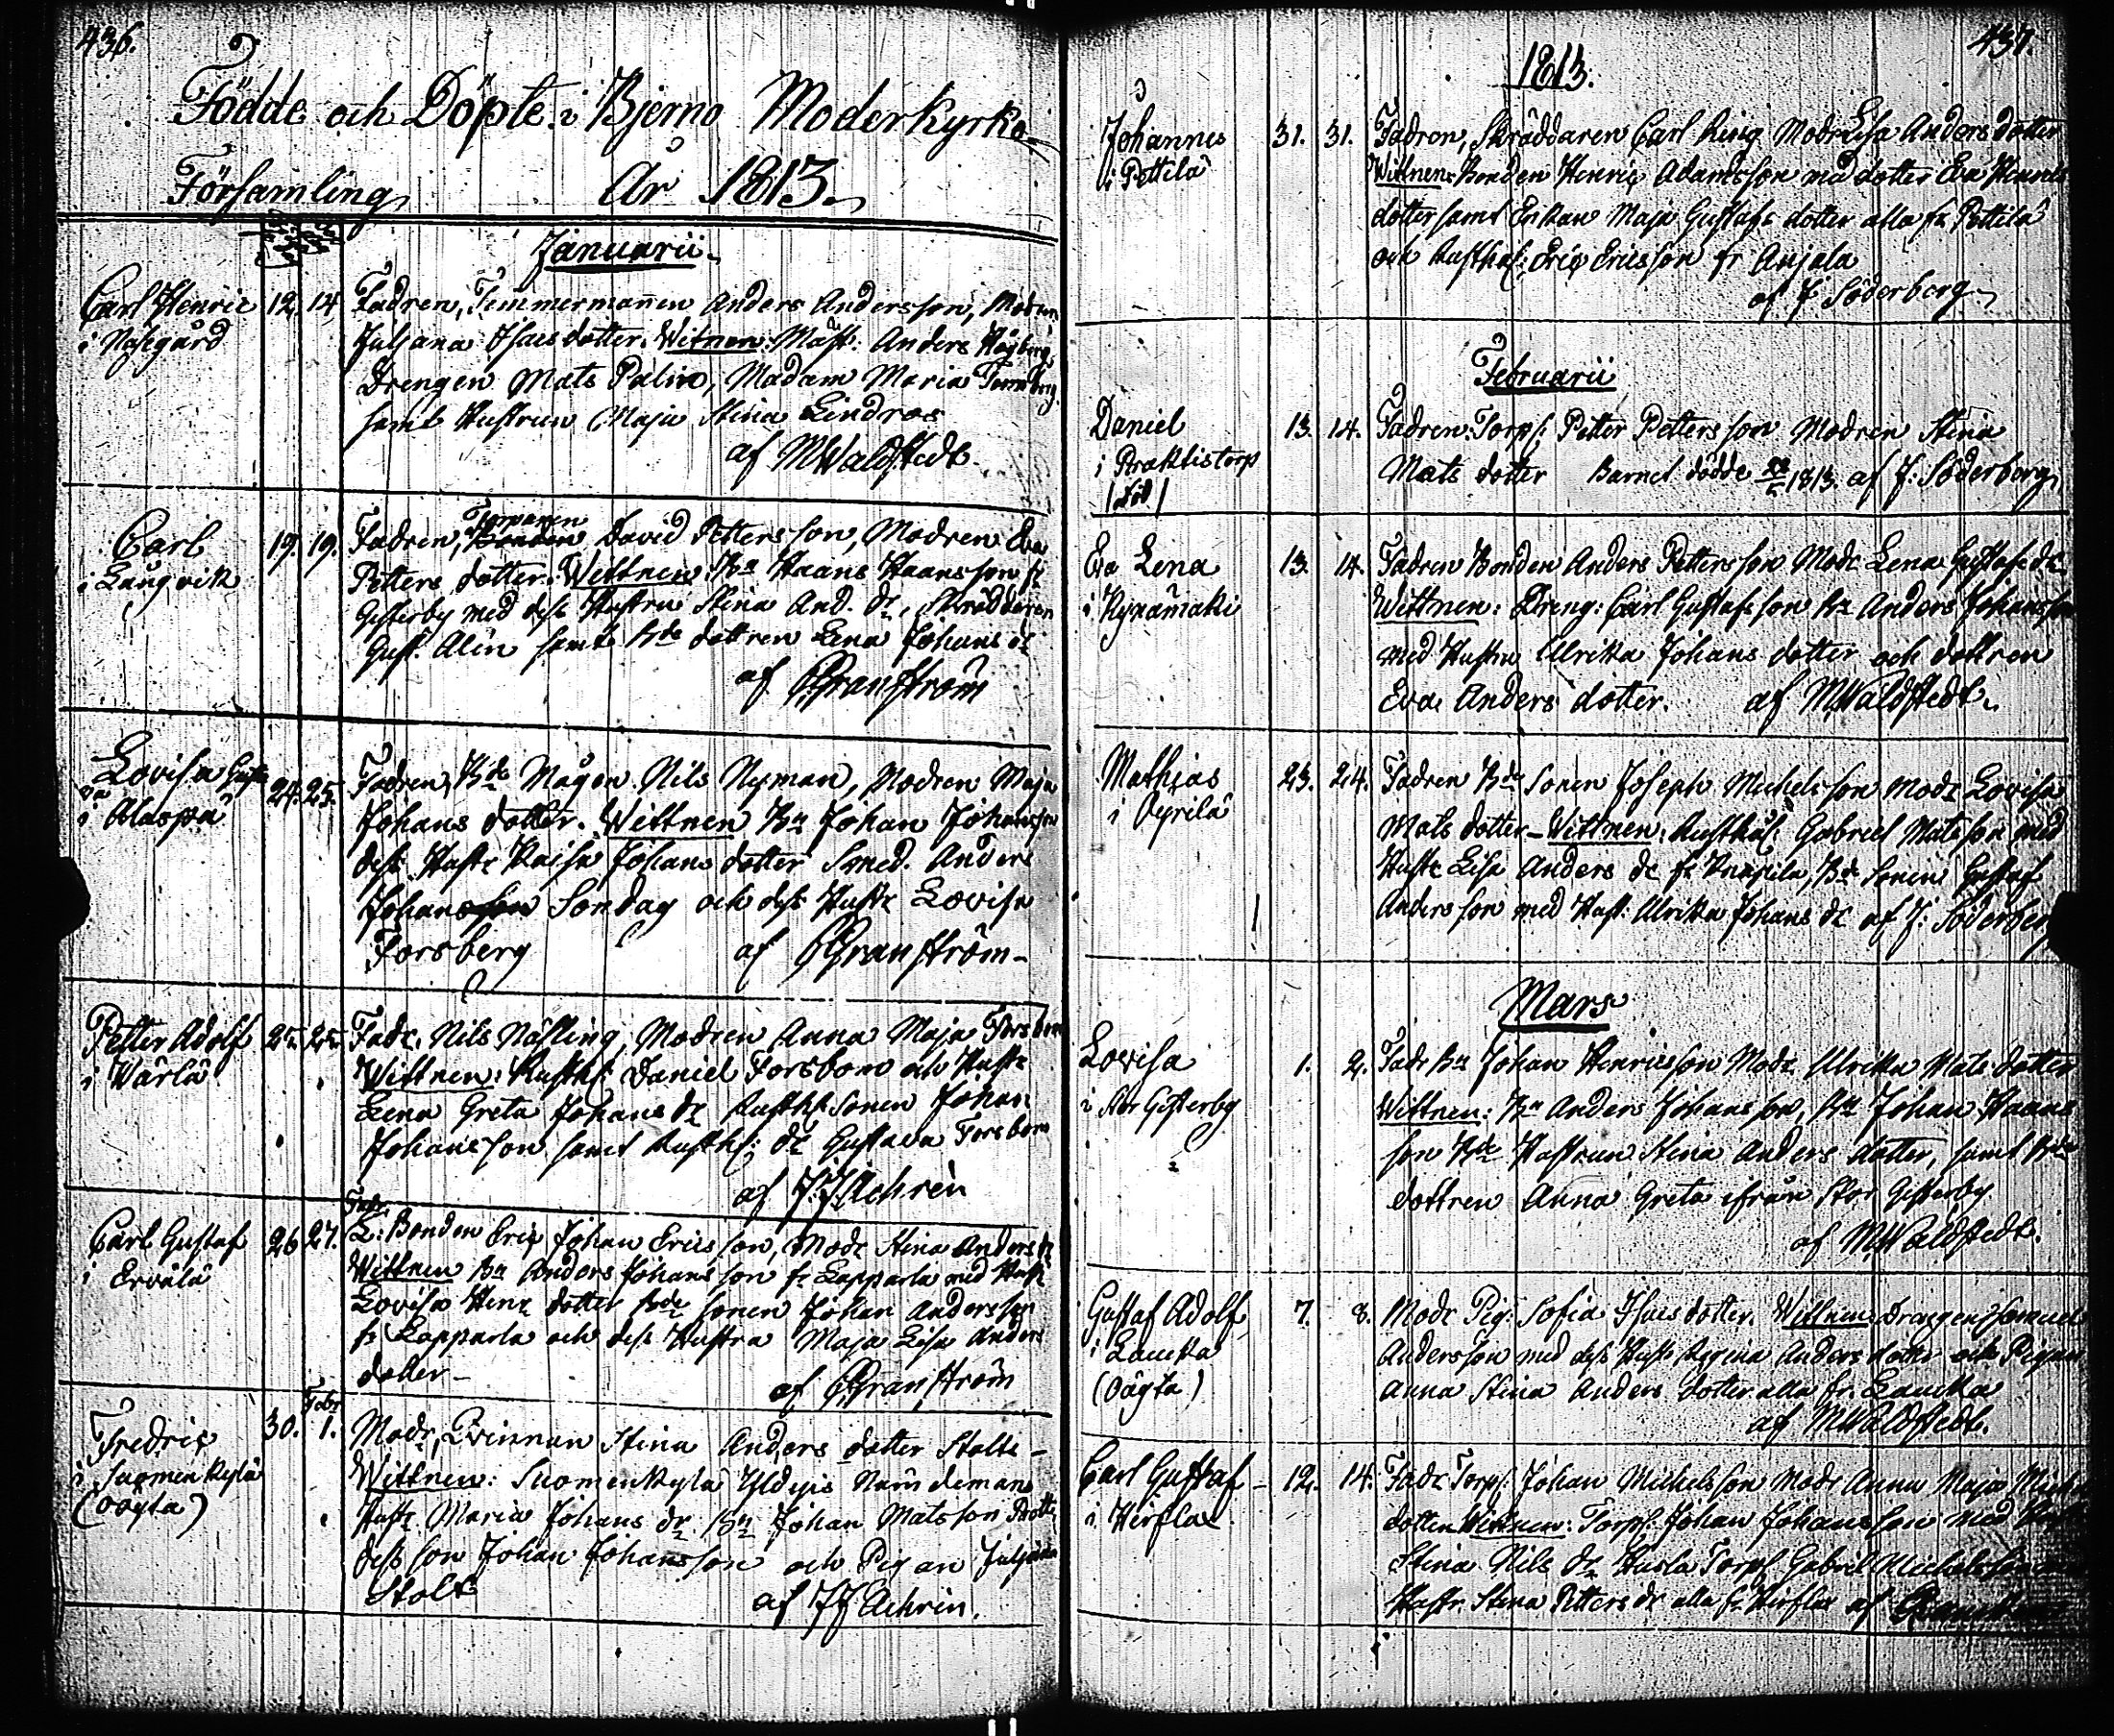 436.
Födde och Döpte i Bjerno Moderkyrko
Församling År 1813.
Januarii
Carl Henric 12. 14. Fadren, Timmermannen Anders Andersson, Modren
i Näsegård Juliana Isacs dotter. Witnen: Mäst: Anders Högberg,
Drengen Mats Palin, Madam Maria
samt Hustrun Maja Stina Lindros
af MWaldstedt
Carl 19. 19. Fadren, Torparen David Petters son, Modren Eva
i Långvik Petters dotter. Wittnen Bn Haans Haansson fr
Gisterby med dess Hustru Stina And. dr, Skräddaren
Gust. Alin samt Bde dottren Lena Johans dr
af GGranström
Lovisa Gusta
va 24. 25. Fadren, Bde Mågen Nils Nyman, Modren Maja
i Alaspä Johans dotter. Wittnen Bn Johan Johansson
dess Hustr Kaisa Johans dotter Smed. Anders
Johansson Söndag och dess Hustr Lovisa
Forsberg af GGranström
Petter Adolf 25. 25. Fadr. Nils Näsling, Modren Anna Maja Forsbom
i Wärlä Wittnen: Rusth: Daniel Forsbom och Hustr
Lena Greta Johans dr Rusth: Sonen Johan
Johansson samt Rusth: dr Gustava Forsbom
af J:J:Achrén
Fadr.
Carl Gustaf 26 27. L: Bonden Eric Johan Ericsson, Modr Stina Anders dr
i Ervälä Wittnen Bn Anders Johansson fr Lapparla med Hustr
Lovisa Henr dotter Bde sonen Johan Andersson
fr Lapparla och dess Hustru Maja Lisa Anders
dotter af GGranström
Febr
Fredric 30. 1. Modr, Qvinnan Stina Anders dotter Stolt
i Suomenkylä Wittnen: Suomenkylä Nämdemans
(Oägta) Hustr Maria Johans dr Bn Johan Matsson
dess son Johan Johansson och Pigan Juliana
Stolt af JJ Achrén.
437.
1813.
Johannes 31. 31. Fadren, Skräddaren Carl Ring Modr Lisa Anders dotter
i Pettilä Wittnen: Bonden Henric Adamsson med dotter Eva Henrics
dotter samt Enkan Maja Gustafs dotter alla fr Pettilä
och Rusthål: Eric Ericsson fr Anjala
af J Söderberg
Februarii
Daniel 13. 14. Fadren: Torp: Petter Pettersson Modren Stina
i Mats dotter Barnet dödde 1813. af J: Söderberg
Eva Lena 13. 14. Fadren Bonden Anders Pettersson Modr Lena Gustafs dr
i Kynämäki Wittnen: Dreng: Carl Gustafsson Bn Anders Johansson
med Hustru Ulrika Johans dotter och dottren
Eva Anders dotter. af MWaldstedt.
Mathias 23. 24. Fadren Bde Sonen Joseph Michelsson Modr Lovisa
i Pyrilä Mats dotter Wittnen: Rusthål: Gabriel Matsson med
Hustr Lisa Anders dr fr Knapila, Bde Sonen Gustaf
Andersson med Hust: Ulrika Johans dr af J: Söderberg
Mars
Lovisa 1. 2. Fadr Bn Johan Henricsson Modr Ulrika Mats dotter
i Stor Gisterby Wittnen: Bn Anders Johansson, Bn Johan Haans
son Bde Hustrun Stina Anders dotter, samt Bde
dottren Anna Greta ifrån Stor Gisterby
af MWaldstedt.
Gustaf Adolf 7. 8. Modr Pig: Sofia Isacs dotter. Wittnen Drangen Samuel
i Laukka Andersson med dess Hustr Regina Anders dotter och Pigan
(Oägta) Anna Stina Anders dotter alla fr. Laukka
af MWaldstedt.
Carl Gustaf 12. 14. Fadr Torp: Johan Michelsson Modr Anna Maja
i Hirsla dotter Wittnen: Torp: Johan Johansson med
Stina Nils dr Torp Gabriel Michelsson
Hustr. Stina Petters dr alla fr Hirsla af